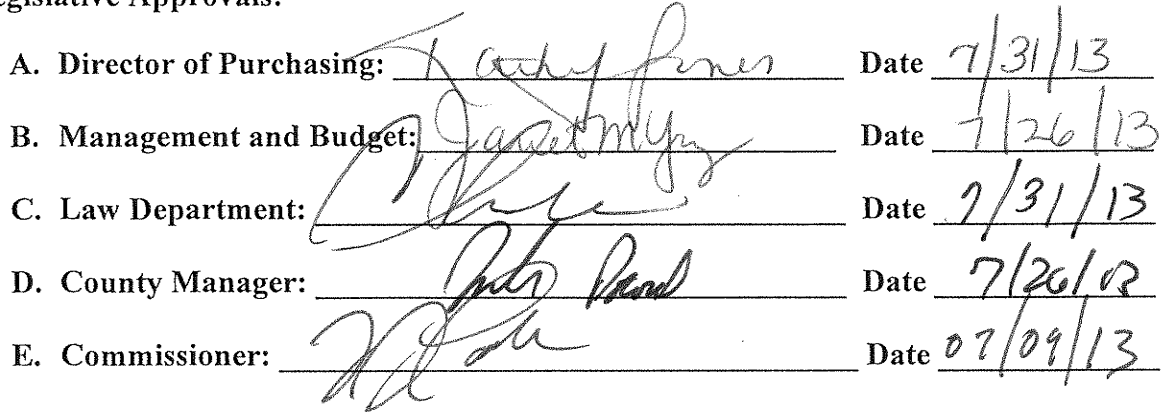 egislative Approvals:
A. Director of Purchasing: Kathy Jones Date 7/31/13
B. Management and Budget: Janet M Date 7/26/13
C. Law Department: Date 7/31/13
D. County Manager: Date 7/26/13
E. Commissioner: Date 07/09/13